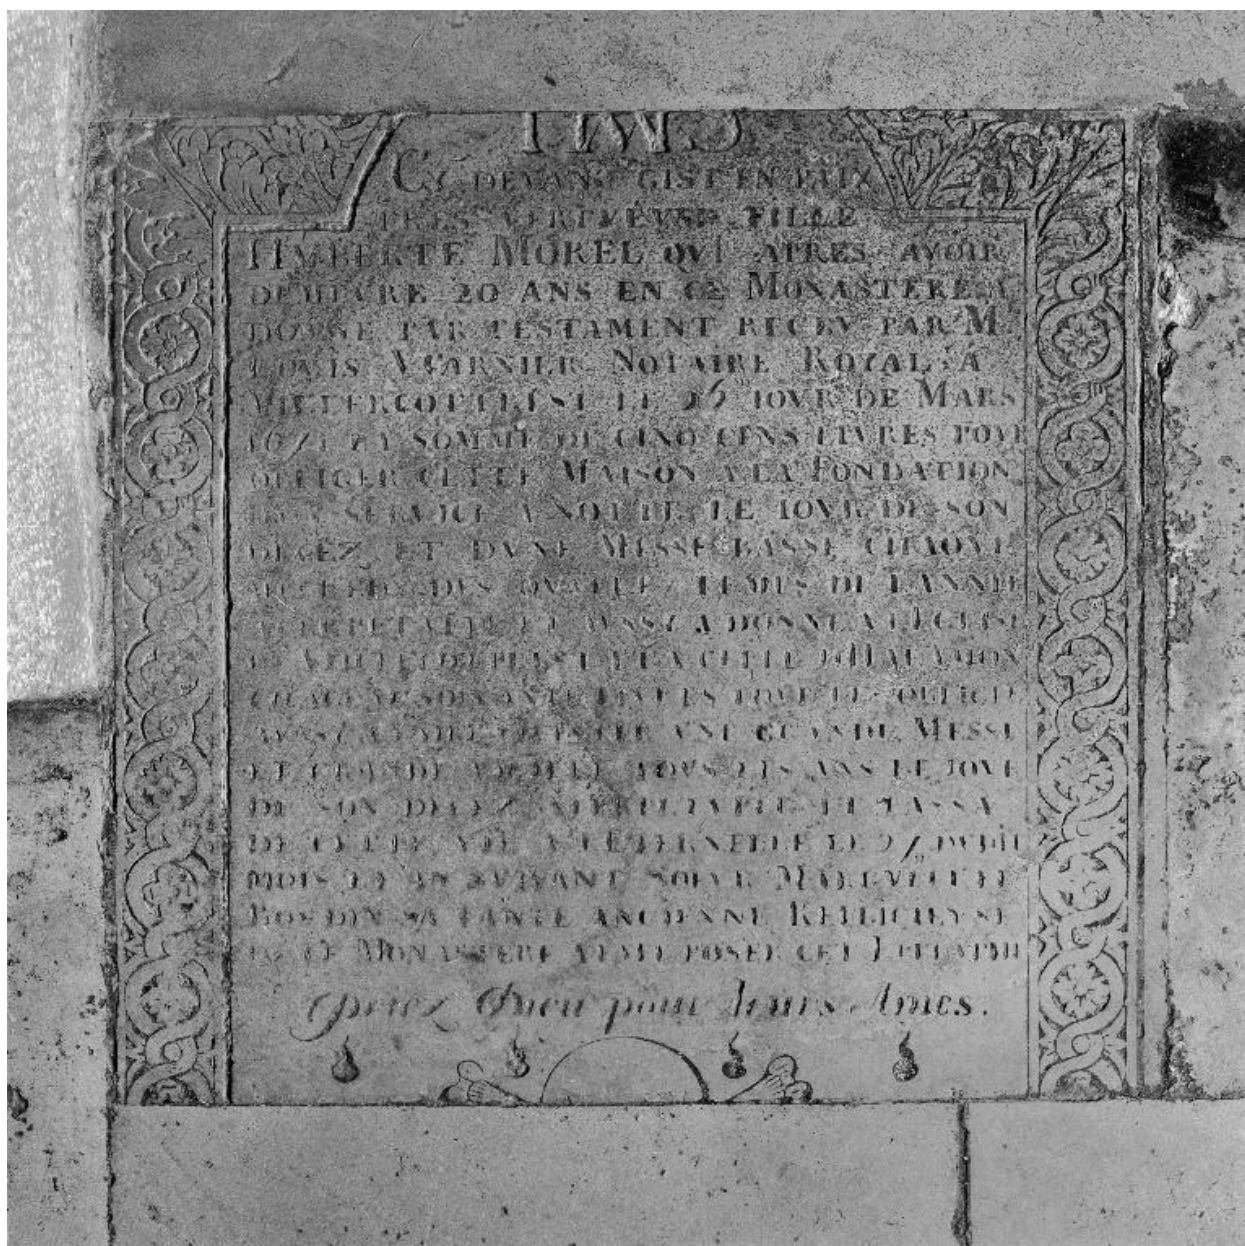 CY DEVANT GIST EN PAIX
TRES VERTVEVSE FILLE
HVBERTE MOREL QVI APRES AVOIR
DEMEVRE 20 ANS EN CE MONASTERE A
DONNE PAR TESTAMENT RECEV PAR M
LOVIS WARNIER NOTAIRE ROYAL A
LE IOVR DE MARS
SOMME DE CINQ CENS LIVRES POVR
OBLIGER CETTE MAISON A LA FONDATION
DVN SERVICE A NOTTE LE IOVR DE SON
DECEZ ET DVNE MESSE BASSE CHAQVE
DES QVATRE TEMPS DE LANNEE
A PERPETVITE ET AVSSY A DONNE A LEGLISE
DE ET A CELLE
SOIXANTE LIVRES POVR LES OBLIGER
AVSSY A FAIRE VNE GRANDE MESSE
ET GRANDE TOVS LES ANS LE IOVR
DE SON DECEZ A PERPETVITE ET PASSA
DE CETTE VIE A LETERNELLE LE
MOIS ET AN SVIVANT SOEVR
SA TANTE ANCIENNE RELIGIEVSE
DE CE MONASTERE A FAIT POSER CET EPITAPHE
Priez Dieu pour leurs Ames.